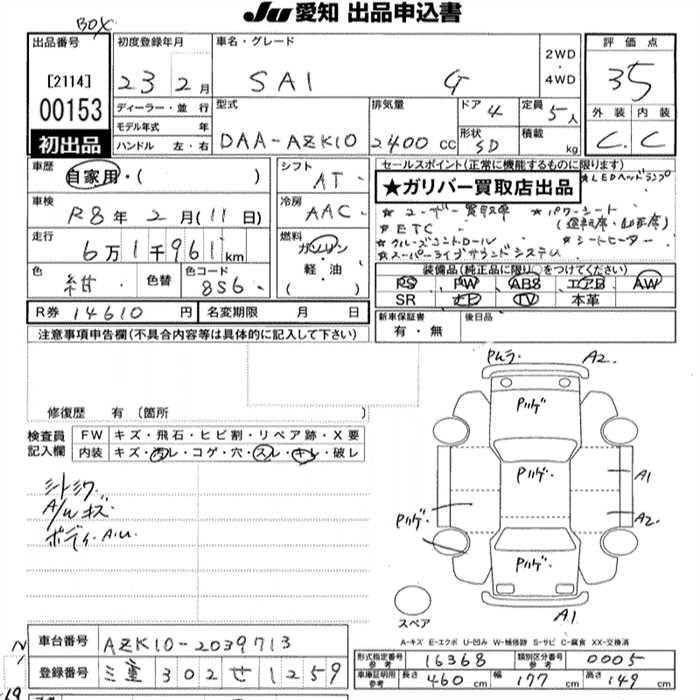 JU 愛知 出品申込書
BOX
出品番号
[2114]
00153
初出品
初度登録年月
23 2月
車名・グレード
SAI G
2WD
・
4WD
評価点
3.5
外装 内装
C. C
ディーラー・並行
モデル年式 年
ハンドル 左・右
型式
DAA-AZK10
排気量
2400 cc
ドア 4
形状 SD
定員 5人
積載 kg
車歴
自家用・( )
シフト
AT
車検
R8年2月(11日)
冷房
AAC
走行
6万1千961km
燃料
ガソリン
軽・油
( )
色
紺
色替
色コード
8S6
R券 14610 円
名変期限 月 日
セールスポイント(正常に機能するものに限ります)
★ガリバー買取店出品
★LEDヘッドランプ
★ユーザー買取車 ★パワーシート
★ETC (運転席・助手席)
★クルーズコントロール ★シートヒーター
★スーパーライブサウンドシステム
装備品(純正品に限り○をつけてください)
PS PW ABS エアB AW
SR ナビ TV 本革
新車保証書
有・無
後日品
注意事項申告欄(不具合内容等は具体的に記入して下さい)
修復歴 有 (箇所 )
検査員
記入欄
FW キズ・飛石・ヒビ割・リペア跡・X要
内装 キズ・汚レ・コゲ・穴・スレ・キレ・破レ
シートシワ
A/Wキズ
ボディA.U.
Pムラ A2.
Pハゲ
Pハゲ
A1
Pハゲ A2
Pハゲ
A1
スペア
A-キズ E-エクボ U-凹み W-補修跡 S-サビ C-腐食 XX-交換済
車台番号 AZK10-2039713
登録番号 三重 302 せ 1259
形式指定番号
参考
16368
類別区分番号
参考
0005
車庫証明用
参考
長さ 460cm 幅 177cm 高さ 149cm